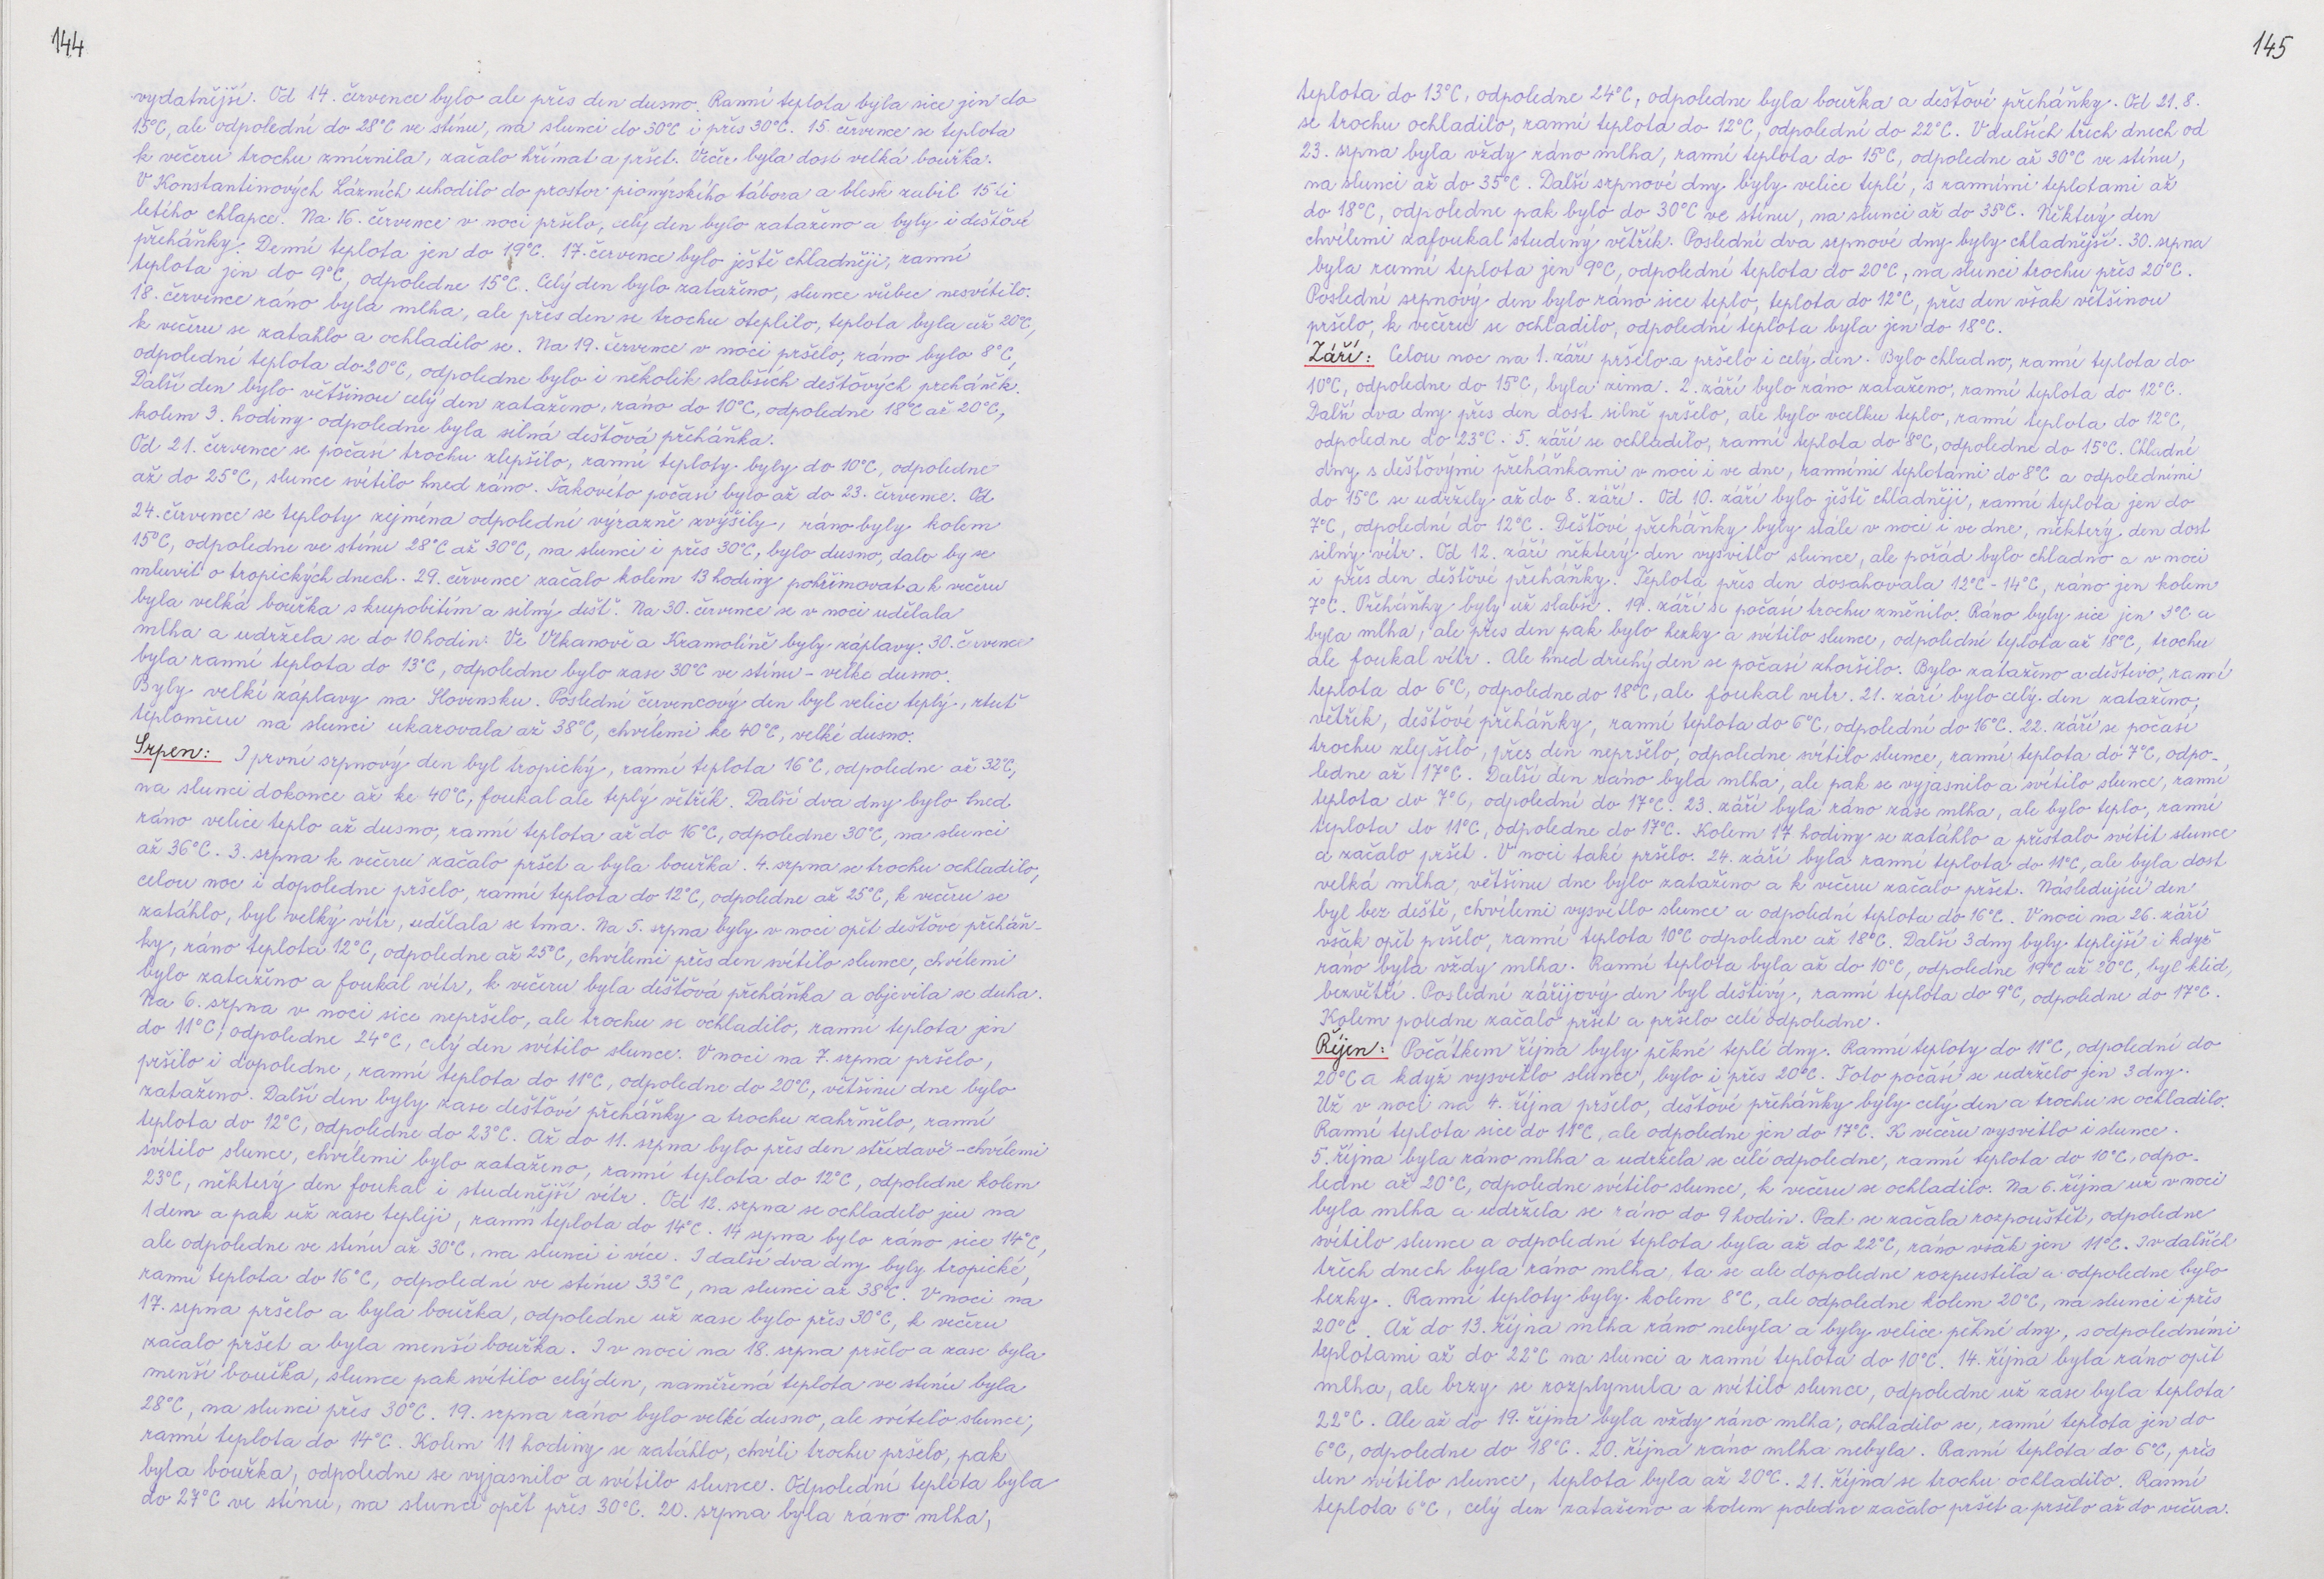 144
vydatnější. Od 14. července bylo ale přes den dusno. Ranní teplota byla sice jen do
15°C, ale odpolední do 28°C ve stínu, na slunci do 30°C i přes 30°C. 15. července se teplota
k večeru trochu zmírnila, začalo hřímat a pršet. Večer byla dosti velká bouřka.
V Konstantinových Lázních uhodilo do prostor pionýrského tábora a blesk zabil 15 ti
letého chlapce. Na 16. července v noci pršelo, celý den bylo zataženo a byly i dešťové
přeháňky. Denní teplota jen do 19°C. 17. července bylo ještě chladněji, ranní
teplota jen do 9°C, odpoledne 15°C. Celý den bylo zataženo, slunce vůbec nesvítilo.
18. července ráno byla mlha, ale přes den se trochu oteplilo, teplota byla už 20°C,
k večeru se zatáhlo a ochladilo se. Na 19. července v noci pršelo, ráno bylo 8°C,
odpolední teplota do 20°C, odpoledne bylo i několik slabších dešťových přeháněk.
Další den bylo většinou celý den zataženo, ráno do 10°C, odpoledne 18°C až 20°C,
kolem 3. hodiny odpoledne byla silná dešťová přeháňka.
Od 21. července se počasí trochu zlepšilo, ranní teploty byly do 10°C, odpoledne
až do 25°C, slunce svítilo hned ráno. Takovéto počasí bylo až do 23. července. Od
24. července se teploty zejména odpolední výrazně zvýšily, ráno byly kolem
15°C, odpoledne ve stínu 28°C až 30°C, na slunci i přes 30°C, bylo dusno, dalo by se
mluvit o tropických dnech. 29. července začalo kolem 13 hodiny pohřimovat a k večeru
byla velká bouřka s krupobitím a silný déšť. Na 30. července se v noci udělala
mlha a udržela se do 10 hodin. Ve Vlkanově a Kramolíně byly záplavy. 30. července
byla ranní teplota do 13°C, odpoledne bylo zase 30°C ve stínu - velké dusno.
Byly velké záplavy na Slovensku. Poslední červencový den byl velice teplý, rtuť
teploměru na slunci ukazovala až 38°C, chvílemi ke 40°C, velké dusno.
Srpen: I první srpnový den byl tropický, ranní teplota 16°C, odpoledne až 32°C,
na slunci dokonce až ke 40°C, foukal ale teplý větřík. Další dva dny bylo hned
ráno velice teplo až dusno, ranní teplota až do 16°C, odpoledne 30°C, na slunci
až 36°C. 3. srpna k večeru začalo pršet a byla bouřka. 4. srpna se trochu ochladilo,
celou noc i dopoledne pršelo, ranní teplota do 12°C, odpoledne až 25°C, k večeru se
zatáhlo, byl velký vítr, udělala se tma. Na 5. srpna byly v noci opět dešťové přeháň-
ky, ráno teplota 12°C, odpoledne až 25°C, chvílemi přes den svítilo slunce, chvílemi
bylo zataženo a foukal vítr, k večeru byla dešťová přeháňka a objevila se duha.
Na 6. srpna v noci sice nepršelo, ale trochu se ochladilo, ranní teplota jen
do 11°C, odpoledne 24°C, celý den svítilo slunce. V noci na 7. srpna pršelo,
pršelo i dopoledne, ranní teplota do 11°C, odpoledne do 20°C, většinu dne bylo
zataženo. Další den byly zase dešťové přeháňky a trochu zahřmělo, ranní
teplota do 12°C, odpoledne do 23°C. Až do 11. srpna bylo přes den střídavě - chvílemi
svítilo slunce, chvílemi bylo zataženo, ranní teplota do 12°C, odpoledne kolem
23°C, některý den foukal i studenější vítr. Od 12. srpna se ochladilo jen na
1 den a pak už zase tepleji, ranní teplota do 14°C. 14 srpna bylo ráno sice 14°C,
ale odpoledne ve stínu až 30°C, na slunci i více. I další dva dny byly tropické,
ranní teplota do 16°C, odpolední ve stínu 33°C, na slunci až 38°C. V noci na
17. srpna pršelo a byla bouřka, odpoledne už zase bylo přes 30°C, k večeru
začalo pršet a byla menší bouřka. I v noci na 18. srpna pršelo a zase byla
menší bouřka, slunce pak svítilo celý den, naměřená teplota ve stínu byla
28°C, na slunci přes 30°C. 19. srpna ráno bylo velké dusno, ale svítilo slunce,
ranní teplota do 14°C. Kolem 11 hodiny se zatáhlo, chvíli trochu pršelo, pak
byla bouřka, odpoledne se vyjasnilo a svítilo slunce. Odpolední teplota byla
do 27°C ve stínu, na slunci opět přes 30°C. 20. srpna byla ráno mlha,
145
teplota do 13°C, odpoledne 24°C, odpoledne byla bouřka a dešťové přeháňky. Od 21.8.
se trochu ochladilo, ranní teplota do 12°C, odpolední do 22°C. V dalších třech dnech od
23. srpna byla vždy ráno mlha, ranní teplota do 15°C, odpoledne až 30°C ve stínu,
na slunci až do 35°C. Další srpnové dny byly velice teplé, s ranními teplotami až
do 18°C, odpoledne pak bylo do 30°C ve stínu, na slunci až do 35°C. Některý den
chvílemi zafoukal studený větřík. Poslední dva srpnové dny byly chladnější. 30. srpna
byla ranní teplota jen 9°C, odpolední teplota do 20°C, na slunci trochu přes 20°C.
Poslední srpnový den bylo ráno sice teplo, teplota do 12°C, přes den však většinou
pršelo, k večeru se ochladilo, odpolední teplota byla jen do 18°C.
Září: Celou noc na 1. září pršelo a pršelo i celý den. Bylo chladno, ranní teplota do
10°C, odpoledne do 15°C, byla zima. 2. září bylo ráno zataženo, ranní teplota do 12°C.
Další dva dny přes den dost silně pršelo, ale bylo vcelku teplo, ranní teplota do 12°C,
odpoledne do 23°C. 5. září se ochladilo, ranní teplota do 8°C, odpoledne do 15°C. Chladné
dny s dešťovými přeháňkami v noci i ve dne, ranními teplotami do 8°C a odpoledními
do 15°C se udržely až do 8. září. Od 10. září bylo ještě chladněji, ranní teplota jen do
7°C, odpolední do 12°C. Dešťové přeháňky byly stále v noci i ve dne, některý den dost
silný vítr. Od 12. září některý den vysvitlo slunce, ale pořád bylo chladno a v noci
i přes den dešťové přeháňky. Teplota přes den dosahovala 12°C - 14°C, ráno jen kolem
7°C. Přeháňky byly už slabší. 19. září se počasí trochu změnilo. Ráno byly sice jen 3°C a
byla mlha, ale přes den pak bylo hezky a svítilo slunce, odpolední teplota až 18°C, trochu
ale foukal vítr. Ale hned druhý den se počasí zhoršilo. Bylo zataženo a deštivo, ranní
teplota do 6°C, odpoledne do 18°C, ale foukal vítr. 21. září bylo celý den zataženo,
větřík, dešťové přeháňky, ranní teplota do 6°C, odpolední do 16°C. 22. září se počasí
trochu zlepšilo, přes den nepršelo, odpoledne svítilo slunce, ranní teplota do 7°C, odpo-
ledne až 17°C. Další den ráno byla mlha, ale pak se vyjasnilo a svítilo slunce, ranní
teplota do 7°C, odpolední do 17°C. 23. září byla ráno zase mlha, ale bylo teplo, ranní
teplota do 11°C, odpoledne do 17°C. Kolem 17 hodiny se zatáhlo a přestalo svítit slunce
a začalo pršet. V noci také pršelo. 24. září byla ranní teplota do 11°C, ale byla dost
velká mlha, většinu dne bylo zataženo a k večeru začalo pršet. Následující den
byl bez deště, chvílemi vysvitlo slunce a odpolední teplota do 16°C. V noci na 26. září
však opět pršelo, ranní teplota 10°C odpoledne až 18°C. Další 3 dny byly teplejší i když
ráno byla vždy mlha. Ranní teplota byla až do 10°C, odpoledne 19°C až 20°C, byl klid,
bezvětří. Poslední zářijový den byl deštivý, ranní teplota do 9°C, odpoledne do 17°C.
Kolem poledne začalo pršet a pršelo celé odpoledne.
Říjen: Počátkem října byly pěkné teplé dny. Ranní teploty do 11°C, odpolední do
20°C a když vysvitlo slunce, bylo i přes 20°C. Toto počasí se udrželo jen 3 dny.
Už v noci na 4. října pršelo, dešťové přeháňky byly celý den a trochu se ochladilo.
Ranní teplota sice do 11°C, ale odpoledne jen do 17°C. K večeru vysvitlo i slunce.
5. října byla ráno mlha a udržela se celé odpoledne, ranní teplota do 10°C, odpo-
ledne až 20°C, odpoledne svítilo slunce, k večeru se ochladilo. Na 6. října už v noci
byla mlha a udržela se ráno do 9 hodin. Pak se začala rozpouštět, odpoledne
svítilo slunce a odpolední teplota byla až do 22°C, ráno však jen 11°C. I v dalších
třech dnech byla ráno mlha, ta se ale dopoledne rozpustila a odpoledne bylo
hezky. Ranní teploty byly kolem 8°C, ale odpoledne kolem 20°C, na slunci i přes
20°C. Až do 13. října mlha ráno nebyla a byly velice pěkné dny, s odpoledními
teplotami až do 22°C na slunci a ranní teplota do 10°C. 14. října byla ráno opět
mlha, ale brzy se rozplynula a svítilo slunce, odpoledne už zase byla teplota
22°C. Ale až do 19. října byla vždy ráno mlha, ochladilo se, ranní teplota jen do
6°C, odpoledne do 18°C. 20. října ráno mlha nebyla. Ranní teplota do 6°C, přes
den svítilo slunce, teplota byla až 20°C. 21. října se trochu ochladilo. Ranní
teplota 6°C, celý den zataženo a kolem poledne začalo pršet a pršelo až do večera.